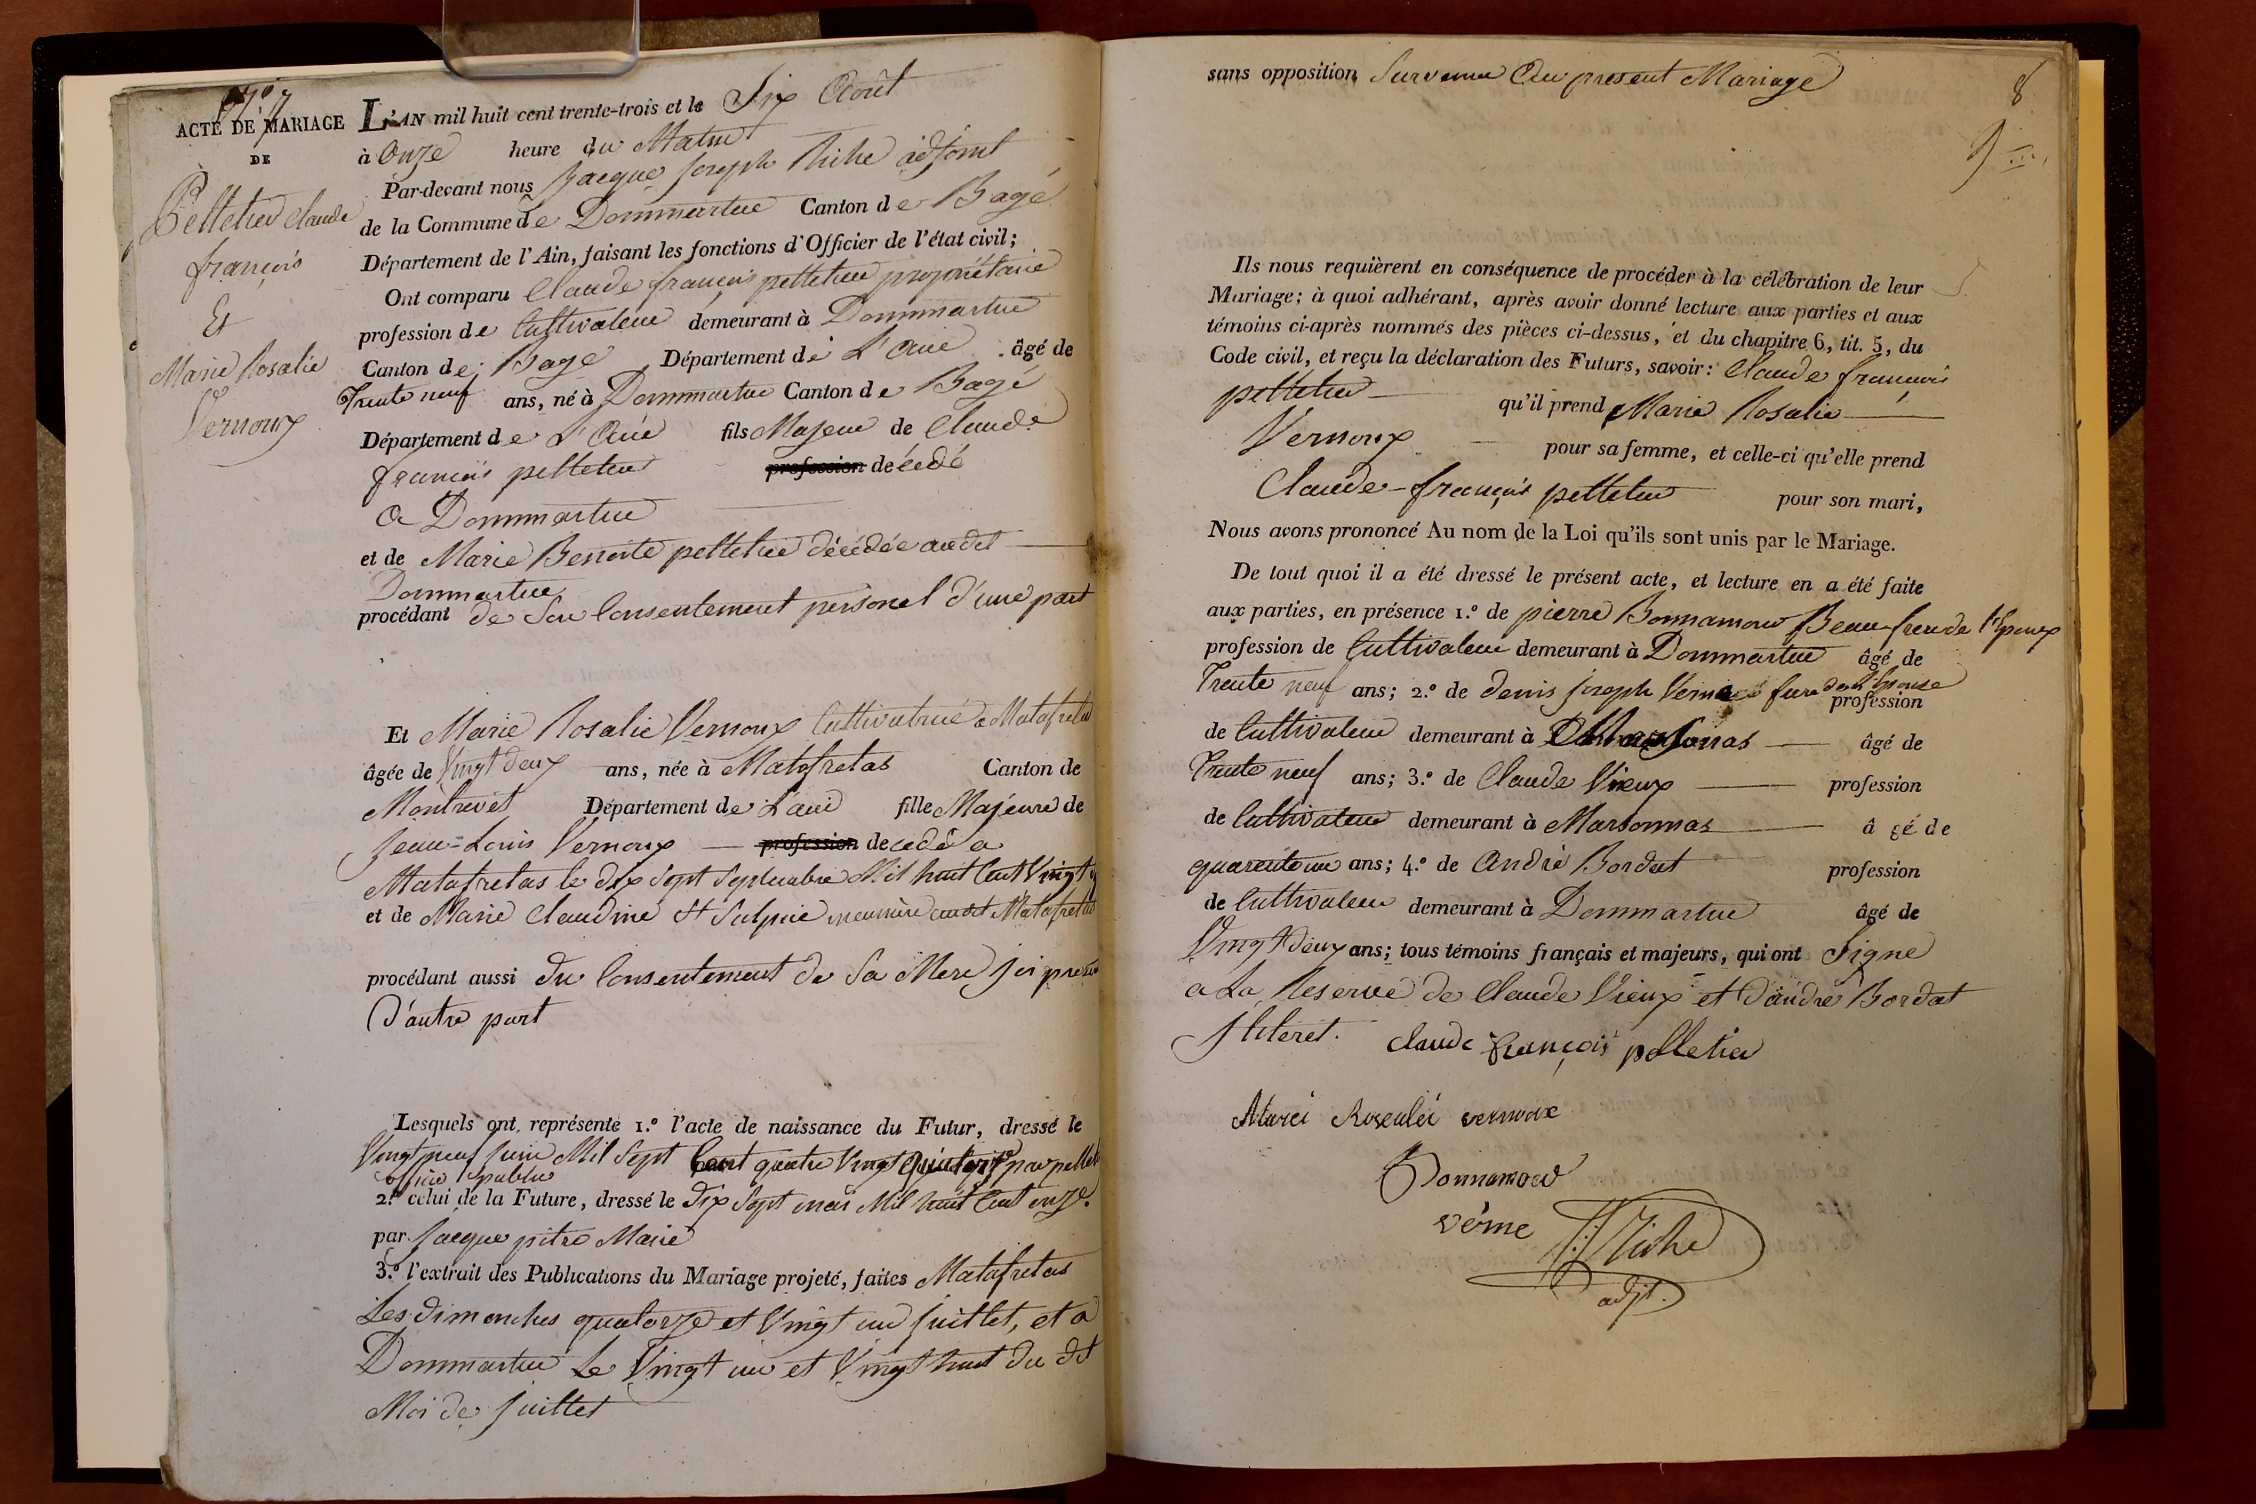 N° 7
ACTE DE MARIAGE
DE
Pelletier Claude
françois
Et
Marie Rosalie
Vernoux
L'AN mil huit cent trente-trois et le Six Août
à Onze heure du Matin
Par-devant nous Jacque Joseph Riche adjoint
de la Commune de Dommartin Canton de Bagé
Département de l'Ain, faisant les fonctions d'Officier de l'état civil;
Ont comparu Claude françois pelletier propriétaire
profession de Cultivateur demeurant à Dommartin
Canton de Bagé Département de L'Ain âgé de
Trente neuf ans, né à Dommartin Canton de Bagé
Département de L'Ain fils Majeur de Claude
françois pelletier profession décédé
a Dommartin
et de Marie Benoite pelletier décédée audit
Dommartin
procédant de Son Consentement personel d'une part
Et Marie Rosalie Vernoux Cultivatrice a Matafrelas
âgée de Vingt deux ans, née à Matafretas Canton de
Montrevet Département de L'ain fille Majeure de
Jean-Louis Vernoux profession decedé a
Matafretas le dix Sept Septembre Mil huit Cent Vingt
et de Marie Claudine St Sulpice meunière audit Matafretas
procédant aussi du Consentement de Sa Mere ici
D'autre part
Lesquels ont représenté 1.º l'acte de naissance du Futur, dressé le
Vingt neuf juin Mil Sept Cent quatre Vingt par
officier public
2.º celui de la Future, dressé le dix Sept mai Mil huit Cent onze.
par Jacque pitre Maire
3.º l'extrait des Publications du Mariage projeté, faites Matafretas
Les dimenches quatorze et Vingt un Juillet, et a
Dommartin Le Vingt un et Vingt huit du dit
Moi de Juillet
sans opposition Survenue Au present Mariage
8
Ils nous requièrent en conséquence de procéder à la célébration de leur
Mariage; à quoi adhérant, après avoir donné lecture aux parties et aux
témoins ci-après nommés des pièces ci-dessus, et du chapitre 6, tit. 5, du
Code civil, et reçu la déclaration des Futurs, savoir: Claude françois
pelletier qu'il prend Marie Rosalie
Vernoux pour sa femme, et celle-ci qu'elle prend
Claude-françois pelletier pour son mari,
Nous avons prononcé Au nom de la Loi qu'ils sont unis par le Mariage.
De tout quoi il a été dressé le présent acte, et lecture en a été faite
aux parties, en présence 1.º de pierre Bonnamour Beau frere de l'Epoux
profession de Cultivateur demeurant à Dommartin âgé de
Trente neuf ans; 2.º de denis joseph frere de l'Epouse
profession
de Cultivateur demeurant à Marsonas âgé de
Trente neuf ans; 3.º de Claude Vieux profession
de Cultivateur demeurant à Marsonnas âgé de
quarente un ans; 4.º de André Bordat profession
de Cultivateur demeurant à Dommartin âgé de
Vingt deux ans; tous témoins français et majeurs, qui ont Signe
a La Reserve de Claude Vieux et d'andré Bordat
Illiteret. claude françois pelletier
Marei Rosealei vernoux
Bonnamour
verne
JJ Riche
adjt.